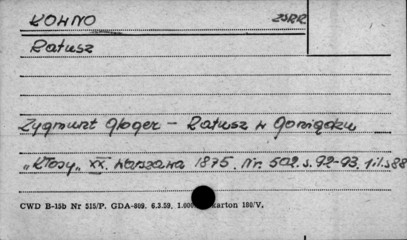 KOWNO ZSRR
Ratusz
Zygmunt Gloger - Ratusz w Goniądzu
"Kłosy" XX. Warszawa 1875. Nr. 502. s. 92-93. 1 il. s 88
CWD B-15b Nr 515/P. GDA-809. 6.3.59. 1.000 karton 180/V.